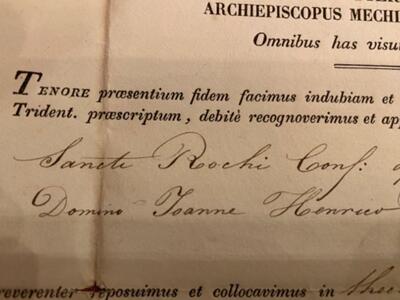 ARCHIEPISCOPUS MECHL
Omnibus has visu
TENORE præsentium fidem facimus indubiam et
Trident. præscriptum, debitè recognoverimus et ap
Sancti Rochi Conf:
Domino Joanne Henrico
reverenter reposuimus et collocavimus in thec